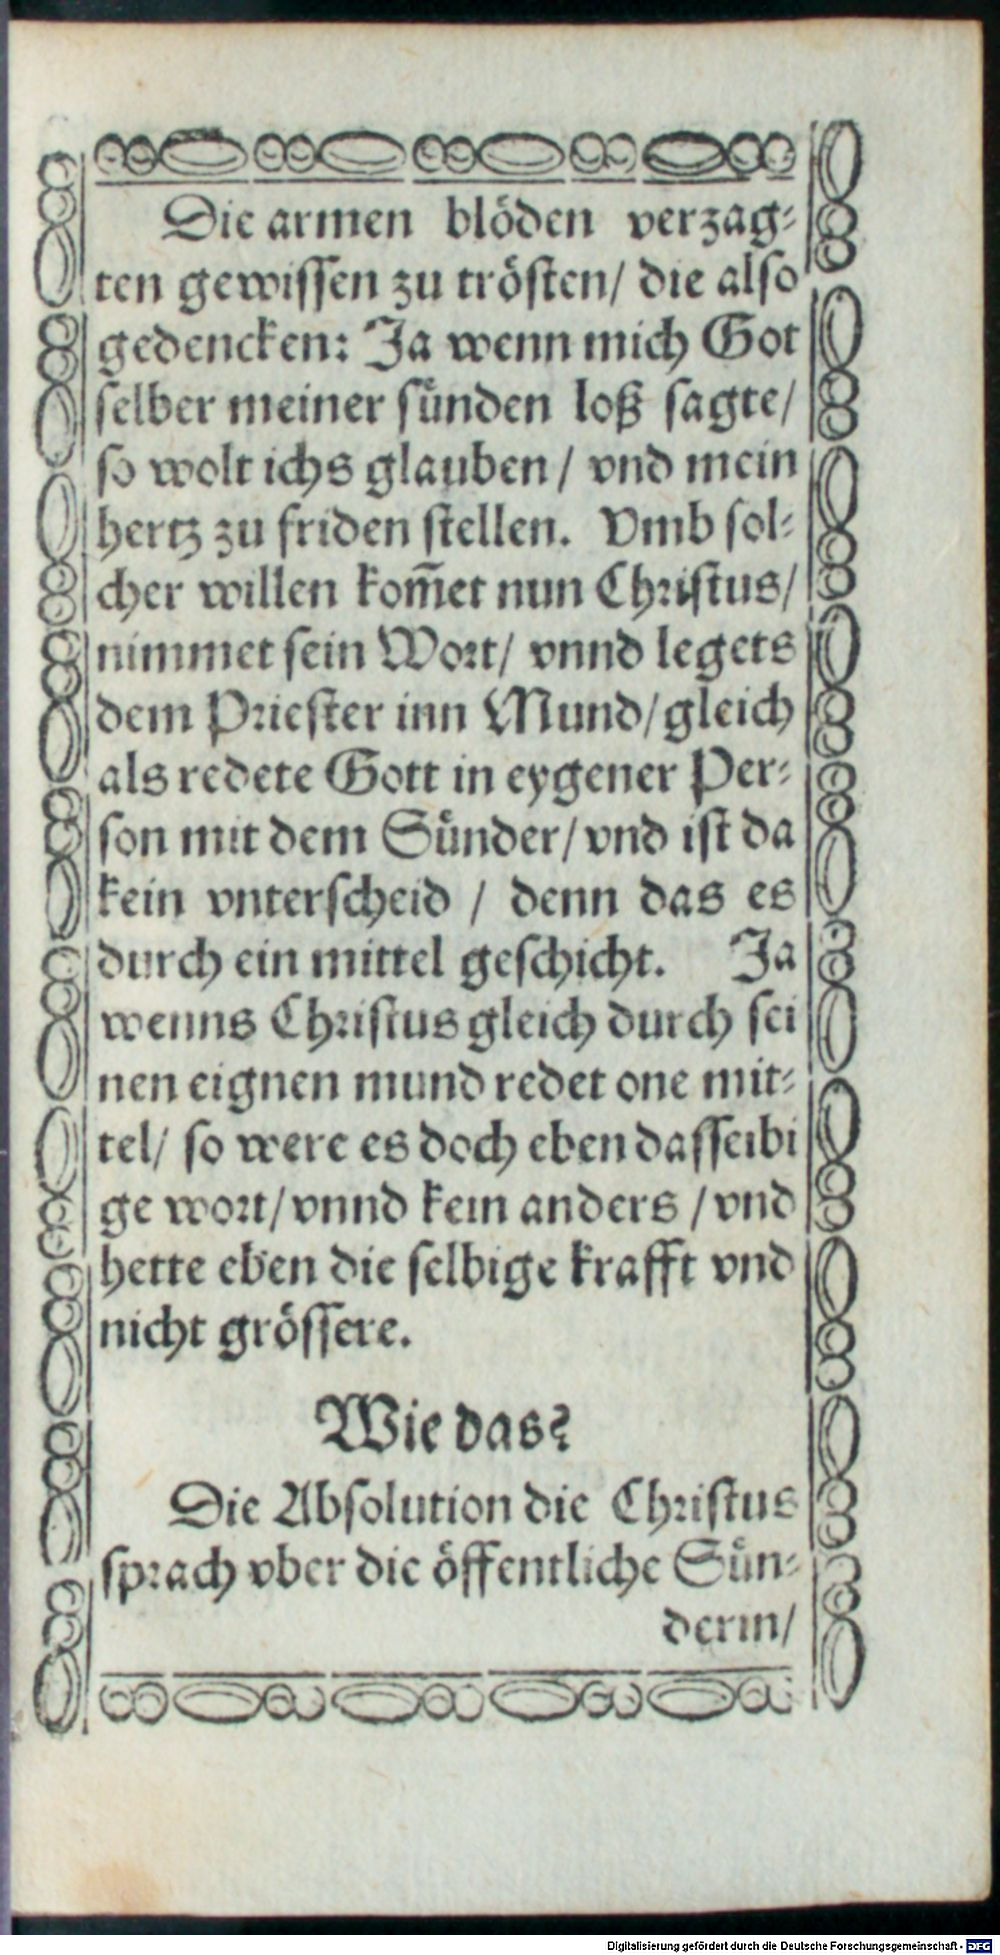 Die armen blöden verzag⸗
ten gewiſſen zu tröſten/ die alſo
gedencken: Ja wenn mich Got
ſelber meiner ſünden loß ſagte/
ſo wolt ichs glauben / vnd mein
hertz zu friden ſtellen. Vmb ſol⸗
cher willen kom̃et nun Chriſtus/
nimmet ſein Wort/ vnnd legets
dem Prieſter inn Mund/ gleich
als redete Gott in eygener Per⸗
ſon mit dem Sünder/ vnd iſt da
kein vnterſcheid / denn das es
durch ein mittel geſchicht. Ja
wenns Chriſtus gleich durch ſei
nen eignen mund redet one mit⸗
tel/ ſo were es doch eben daſſelbi
ge wort/ vnnd kein anders / vnd
hette eben die ſelbige krafft vnd
nicht gröſſere.
Wie das?
Die Abſolution die Chriſtus
ſprach vber die öffentliche Sün⸗
derin/
Digitalisierung gefördert durch die Deutsche Forschungsgemeinschaft - DFG